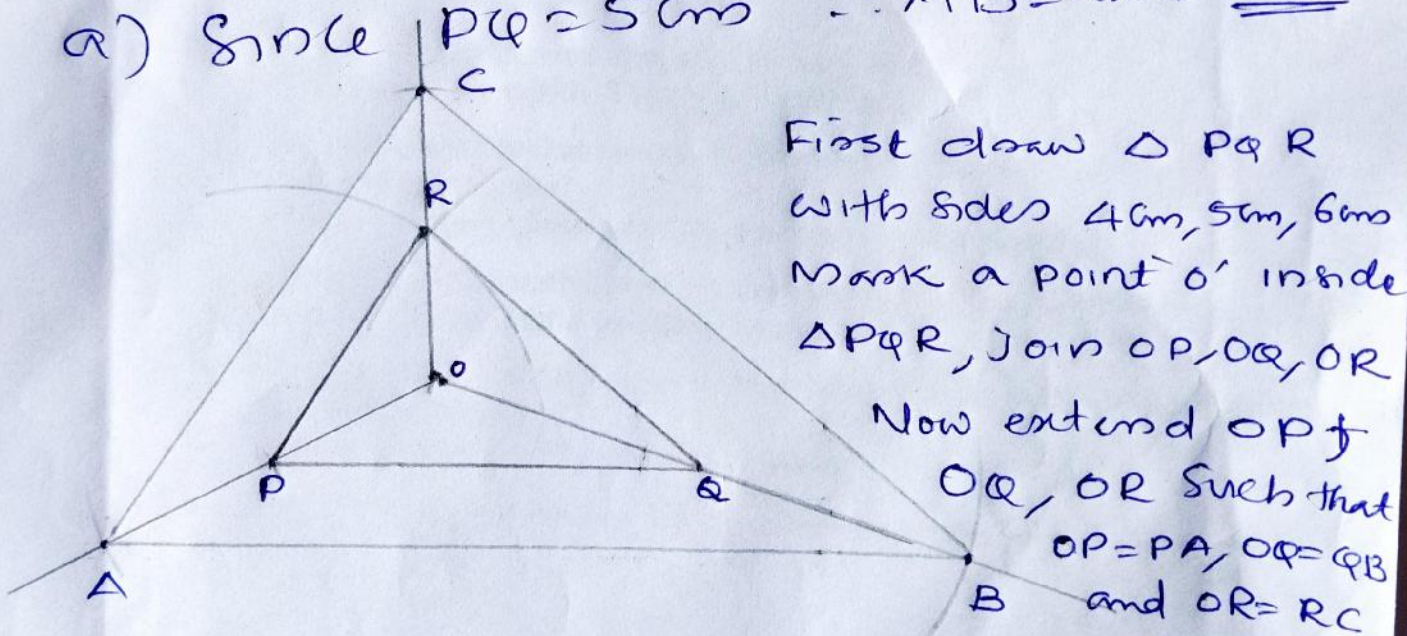 a) Since PQ = 5 cm
C
First draw △ PQR
R
with sides 4cm, 5cm, 6cm
Mark a point 'O' inside
△PQR, Join OP, OQ, OR
O
Now extend OP &
P
Q
OQ, OR Such that
OP = PA, OQ = QB
A
B
and OR = RC